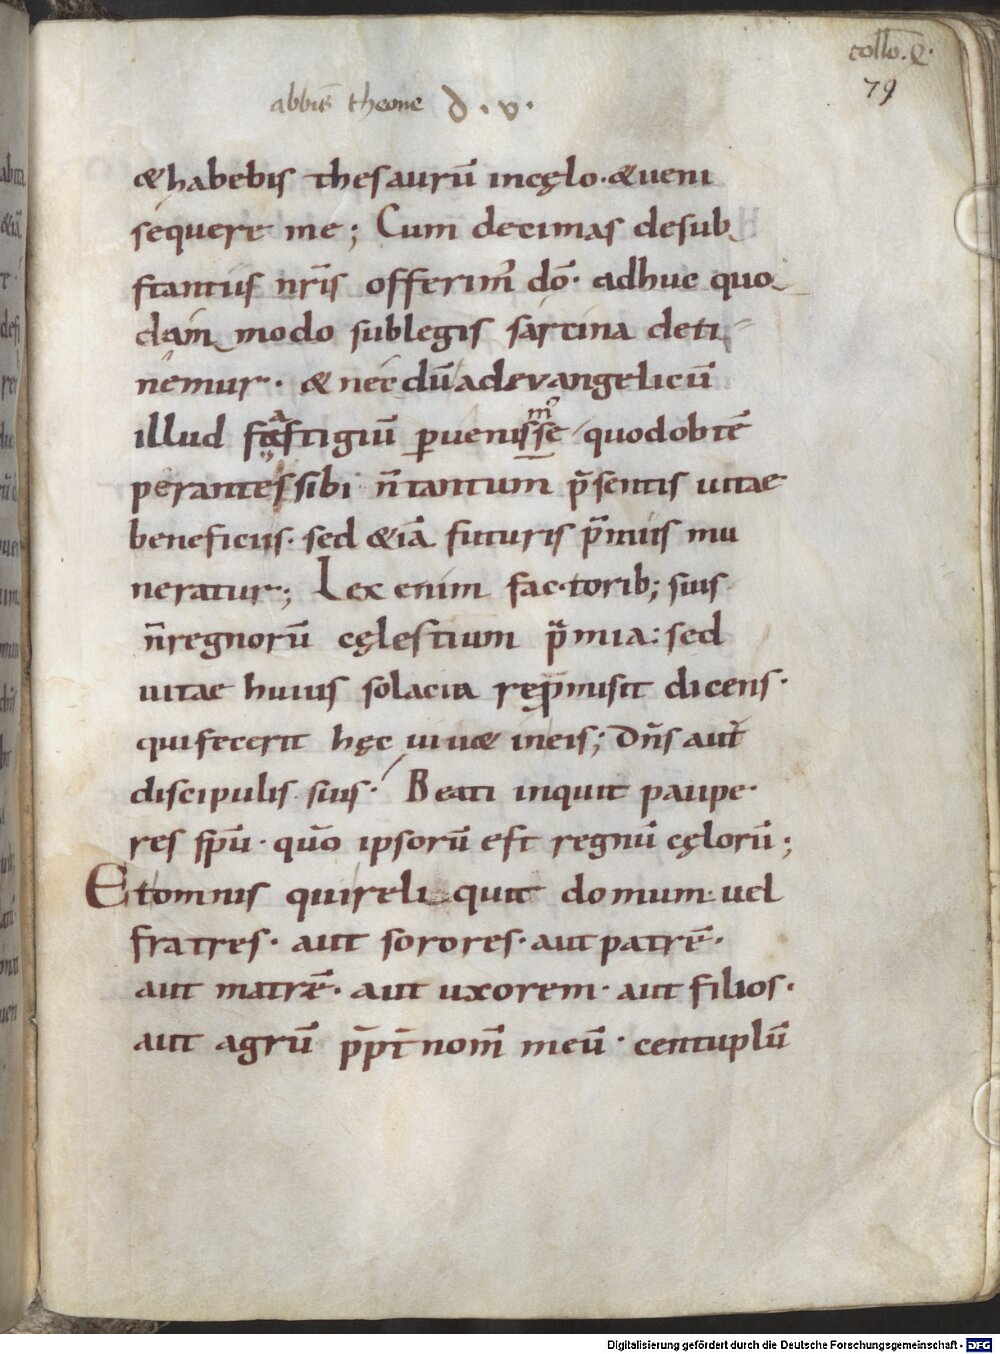 collō. &.
79
abbīs theone d . v .
& habebis thesaurū incęlo. & veni
sequere me ; Cum decimas desub
stantiis nr̄is offerim᾽ dō. adhuc quo
dam modo sublegis sarcina deti
nemur. & necdū adevangelicū
illud fastigiū ꝑuenisse quodobtē
perantes sibi n̄ tantum p̄sentis uitae
beneficiis. sed &iā futuris p̄miis mu
neratur ; Lex enim factorib; suis
n̄ regnorū cęlestium p̄mia : sed
uitae huius solacia rep̄misit dicens.
quifecerit hęc uiu& ineis ; Dn̄s aut̄
discipulis suis. Beati inquit paupe.
res sp̄u. quō ipsorū est regnū cęlorū ;
Et omnis quireliquit domum. uel
fratres. aut sorores. aut patrē.
aut matrē. aut uxorem. aut filios.
aut agrū p̄pt̄ nom̄ meū. centuplū
Digitalisierung gefördert durch die Deutsche Forschungsgemeinschaft - DFG